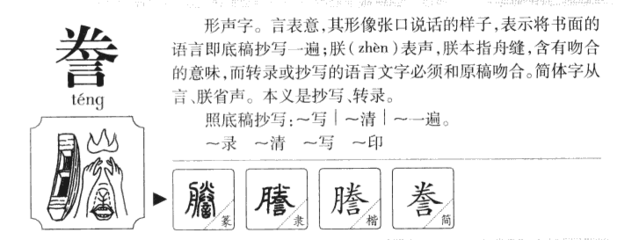 誊
téng
形声字。言表意,其形像张口说话的样子,表示将书面的
语言即底稿抄写一遍;朕(zhèn)表声,朕本指舟缝,含有吻合
的意味,而转录或抄写的语言文字必须和原稿吻合。简体字从
言、朕省声。本义是抄写、转录。
照底稿抄写:～写|～清|～一遍。
～录 ～清 ～写 ～印
謄 篆 謄 隶 謄 楷 誊 简